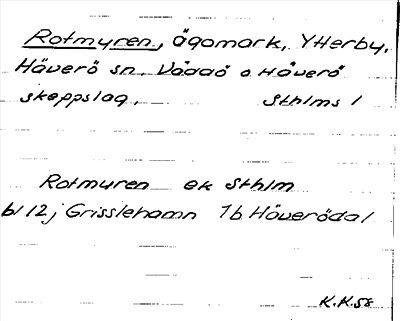 Rotmyren, ägomark, Ytterby,
Häverö sn, Väddö o Häverö
skeppslag, Sthlms l
Rotmyren ek Sthlm
bl 12 j Grisslehamn 1b Häverödal
K.K.58